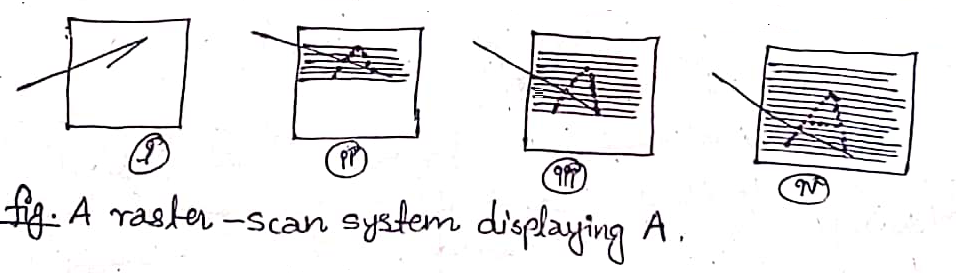 i
ii
iii
iv
fig. A raster-scan system displaying A.